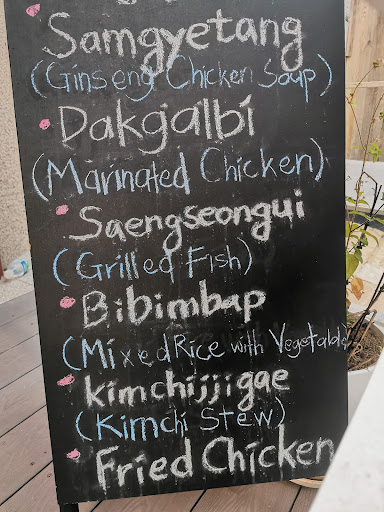 Samgyetang
(Ginseng Chicken Soup)
Dakgalbi
(Marinated Chicken)
Saengseongui
(Grilled Fish)
Bibimbap
(Mixed Rice with Vegetable
kimchijjigae
(Kimchi Stew)
Fried Chicken